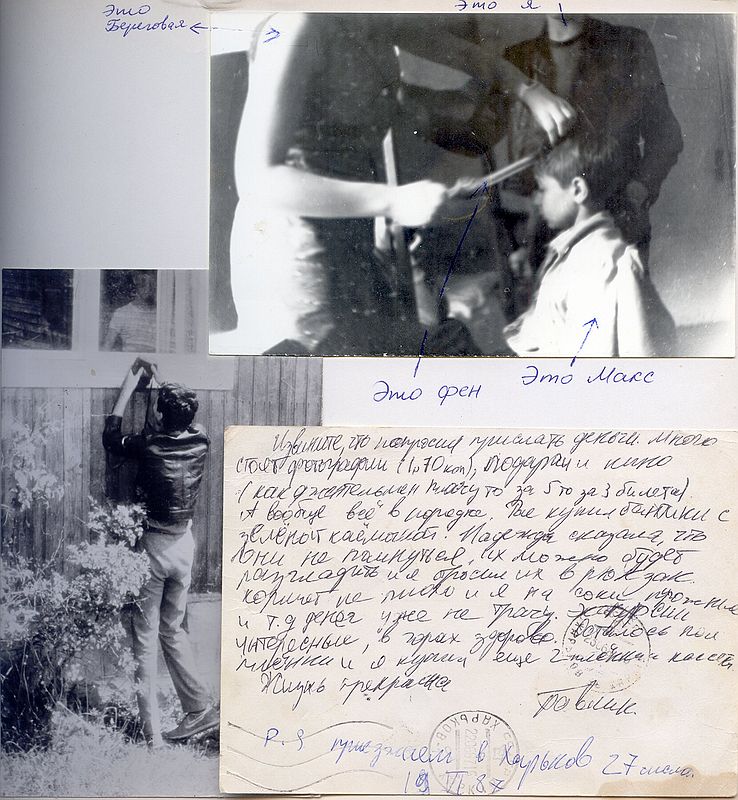 Это
Береговая
Это я
Это фен
Это Макс
Извините, что попросил прислать деньги. Много
стоят фотографии (1р 70 коп), подарки и кино
(как джентельмен плачу то за 5 то за 3 билета).
А вообще всё в порядке. Вам купил бантики с
зелёной каёмочкой. Надежда сказала, что
они не помнуться, их можно будет
разгладить и я бросил их в рюкзак.
Кормят не плохо и я на соки пирожные
и т.д. денег уже не трачу. Экскурсии
интересные, в горах здорово. Осталось пол
плёнки и я купил ещё 2 плёнки и кассеты
Жизнь прекрасна
Павлик.
P.S. приезжаем в Харьков 27 числа.
19 VI 87
ХАРЬКОВ